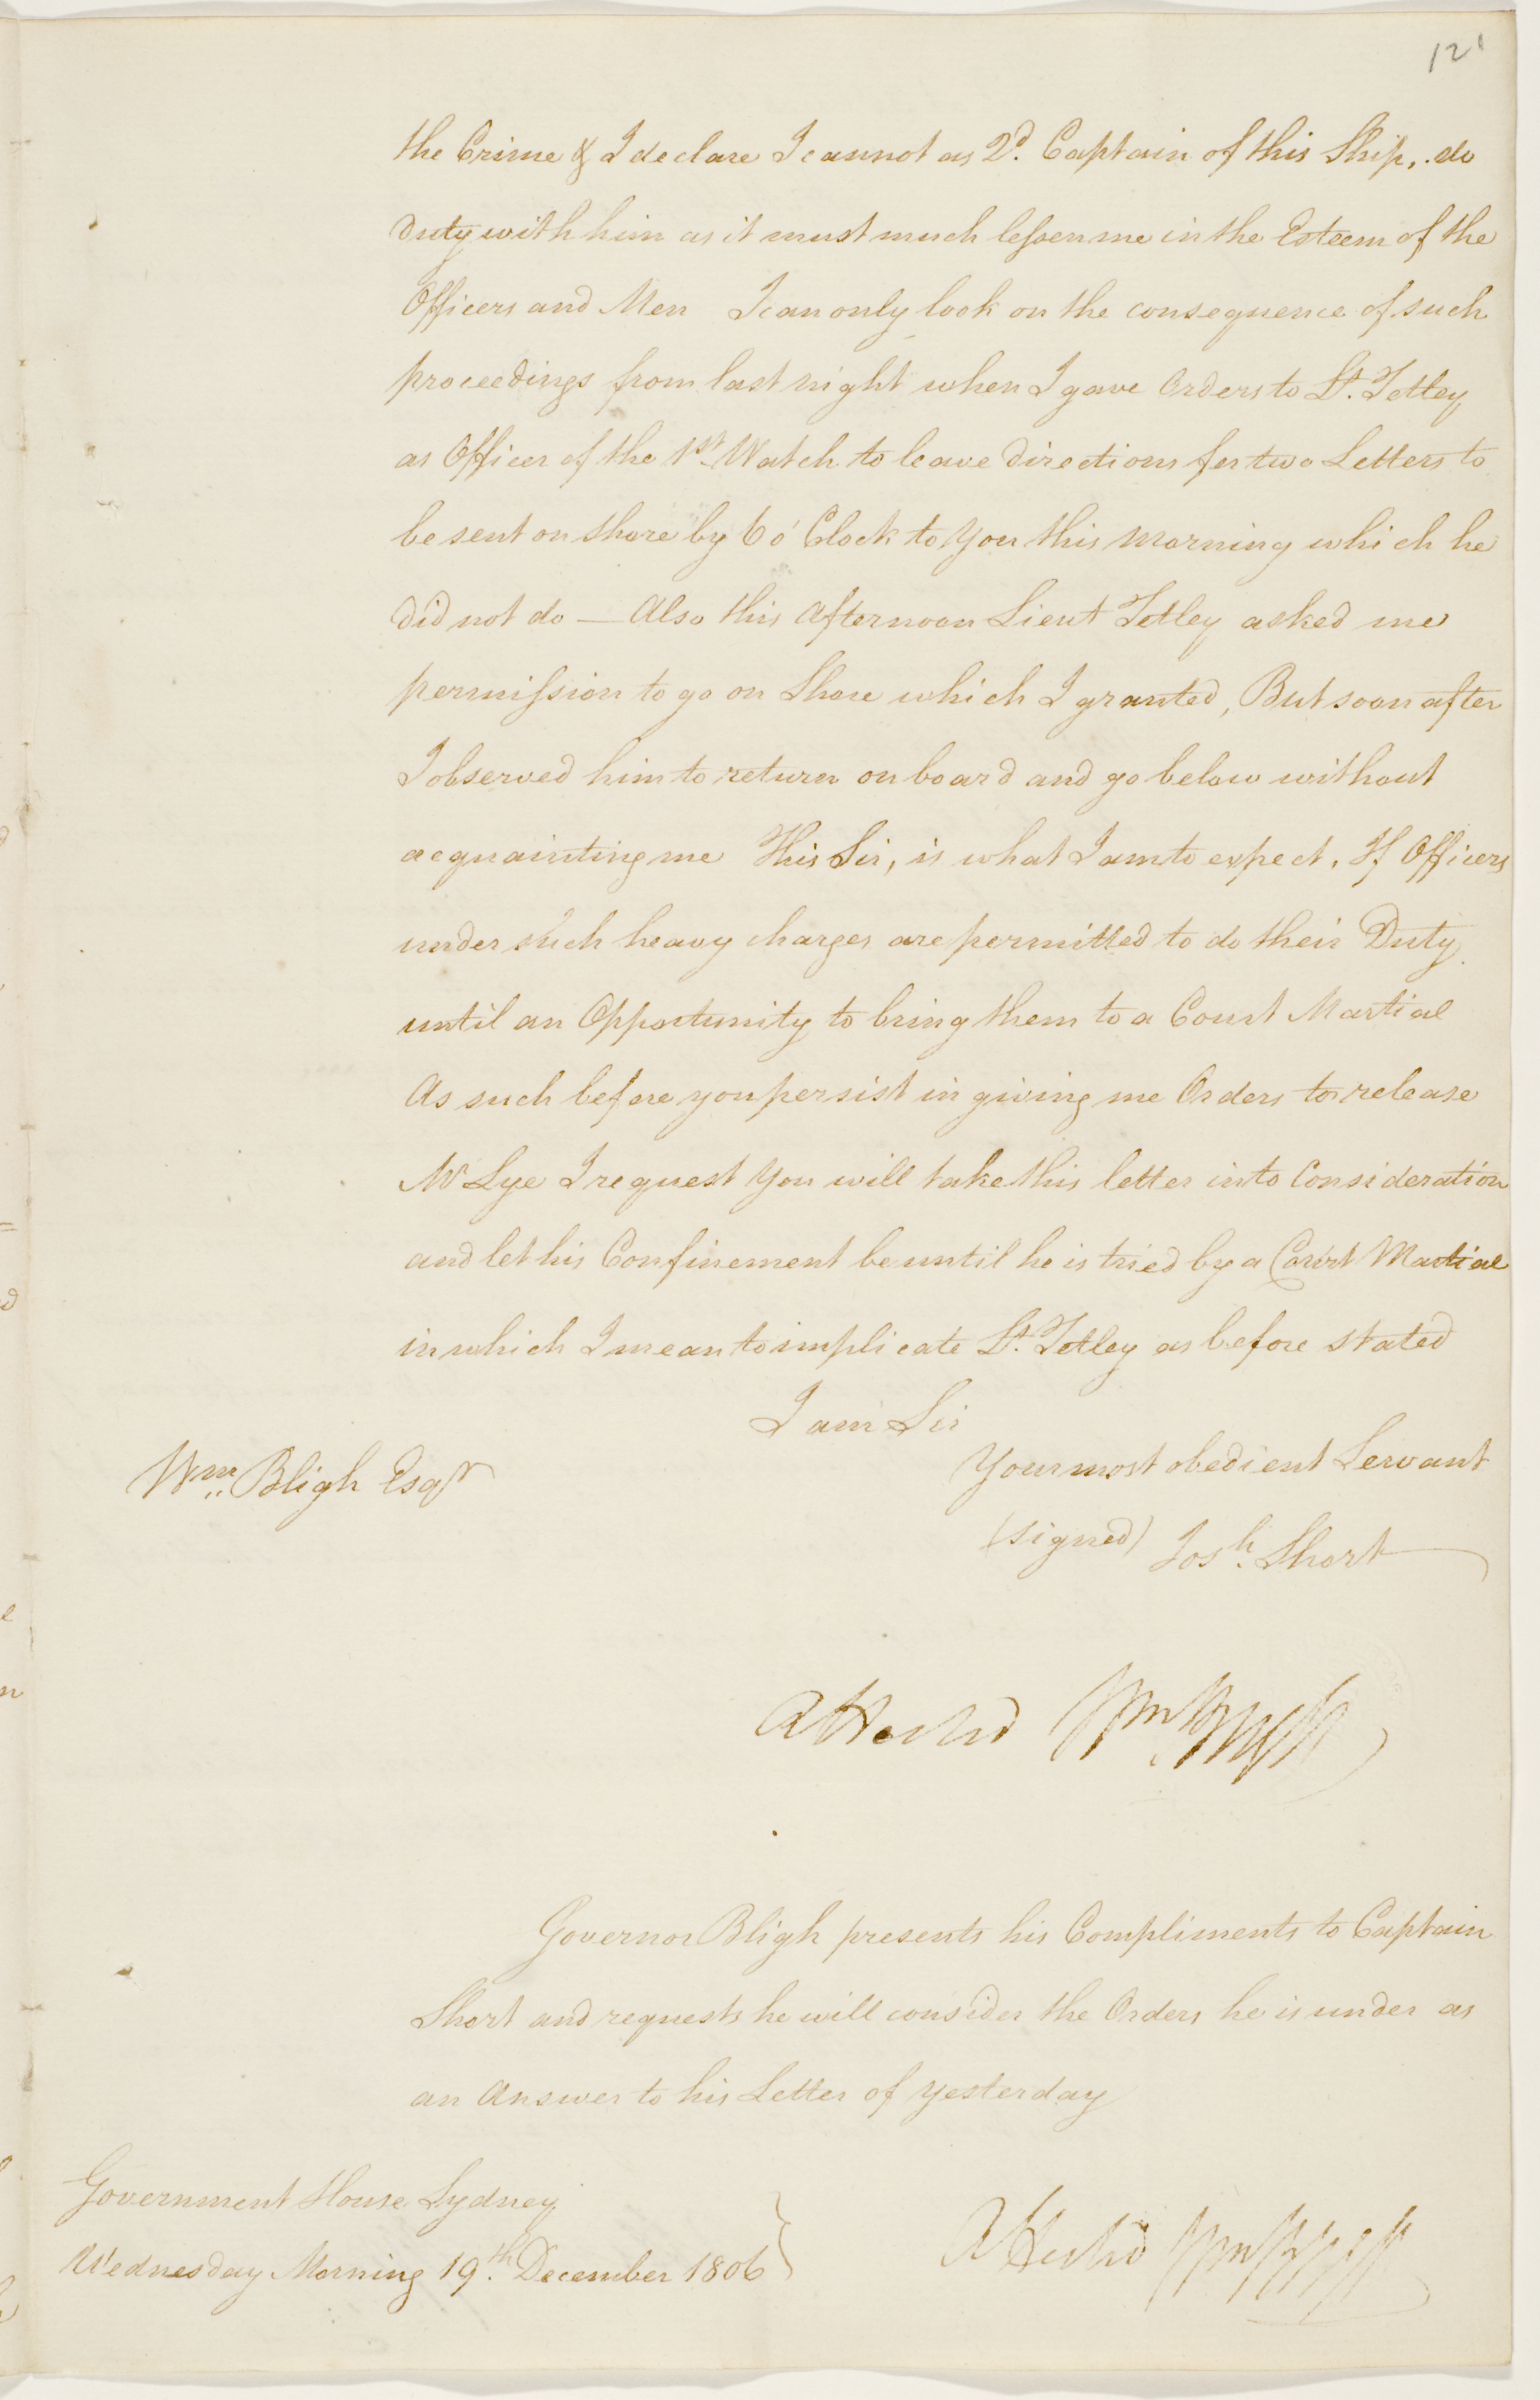 121
the Crime & I declare I cannot as 2d. Captain of this Ship, do
duty with him as it must much lessen me in the Esteem of the
Officers and Men I can only look on the consequence of such
proceedings from last night when I gave Orders to Lt. Tetley
as Officer of the 1st Watch to leave directions for two Letters to
be sent on shore by 6 o' Clock to You this Morning which he
did not do — Also this Afternoon Lieut Tetley asked me
permission to go on Shore which I granted, But soon after
I observed him to return on board and go below without
acquainting me This Sir, is what I am to expect, If Officers
under such heavy charges are permitted to do their Duty
until an Opportunity to bring them to a Court Martial
As such before you persist in giving me Orders to release
Mr Lye I request You will take this letter into Consideration
and let his Confinement be until he is tried by a Court Martial
in which I mean to implicate Lt. Tetley as before stated
I am Sir
Your most obedient Servant
Wm. Bligh Esqr
(signed) Josh. Short
Attested Wm Bligh
Governor Bligh presents his Compliments to Captain
Short and requests he will consider the Orders he is under as
an Answer to his Letter of yesterday
Government House Sydney
Wednesday Morning 19th. December 1806
Attested Wm Bligh